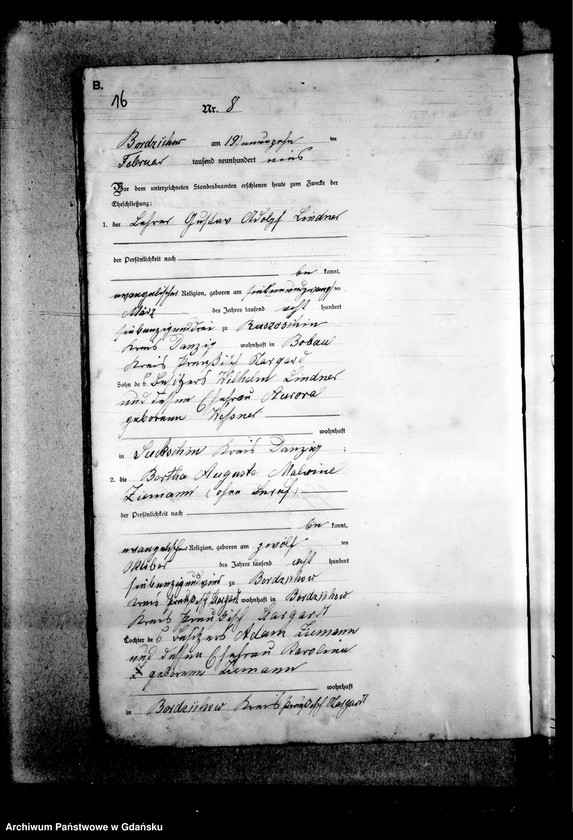 B.
16
Nr. 8
Bordzichow am 19 neunzehn ten
Februar tausend neunhundert eins
Vor dem unterzeichneten Standesbeamten erschienen heute zum Zwecke der
Eheschließung:
1. der Lehrer Gustav Adolf Lindner
der Persönlichkeit nach
be kannt,
evangelischer Religion, geboren am siebenundzwanzig ten
März des Jahres tausend acht hundert
siebenzigunddrei zu Russoschin
Kreis Danzig wohnhaft in Bobau
Kreis Preußisch Stargard
Sohn des Besitzers Wilhelm Lindner
und dessen Ehefrau Aurora
geborene
wohnhaft
in Suckschin Kreis Danzig ;
2. die Bertha Auguste Malwine
Ziemann (ohne Beruf)
der Persönlichkeit nach
be kannt,
evangelischer Religion, geboren am zwölf ten
Oktober des Jahres tausend acht hundert
siebenzigundvier zu Bordzichow
Kreis Preußisch Stargard wohnhaft in Bordzichow
Kreis Preußisch Stargard
Tochter des Besitzers Adam Ziemann
und dessen Ehefrau Karoline
geborene Ziemann
wohnhaft
in Bordzichow Kreis Preußisch Stargard
Archiwum Państwowe w Gdańsku